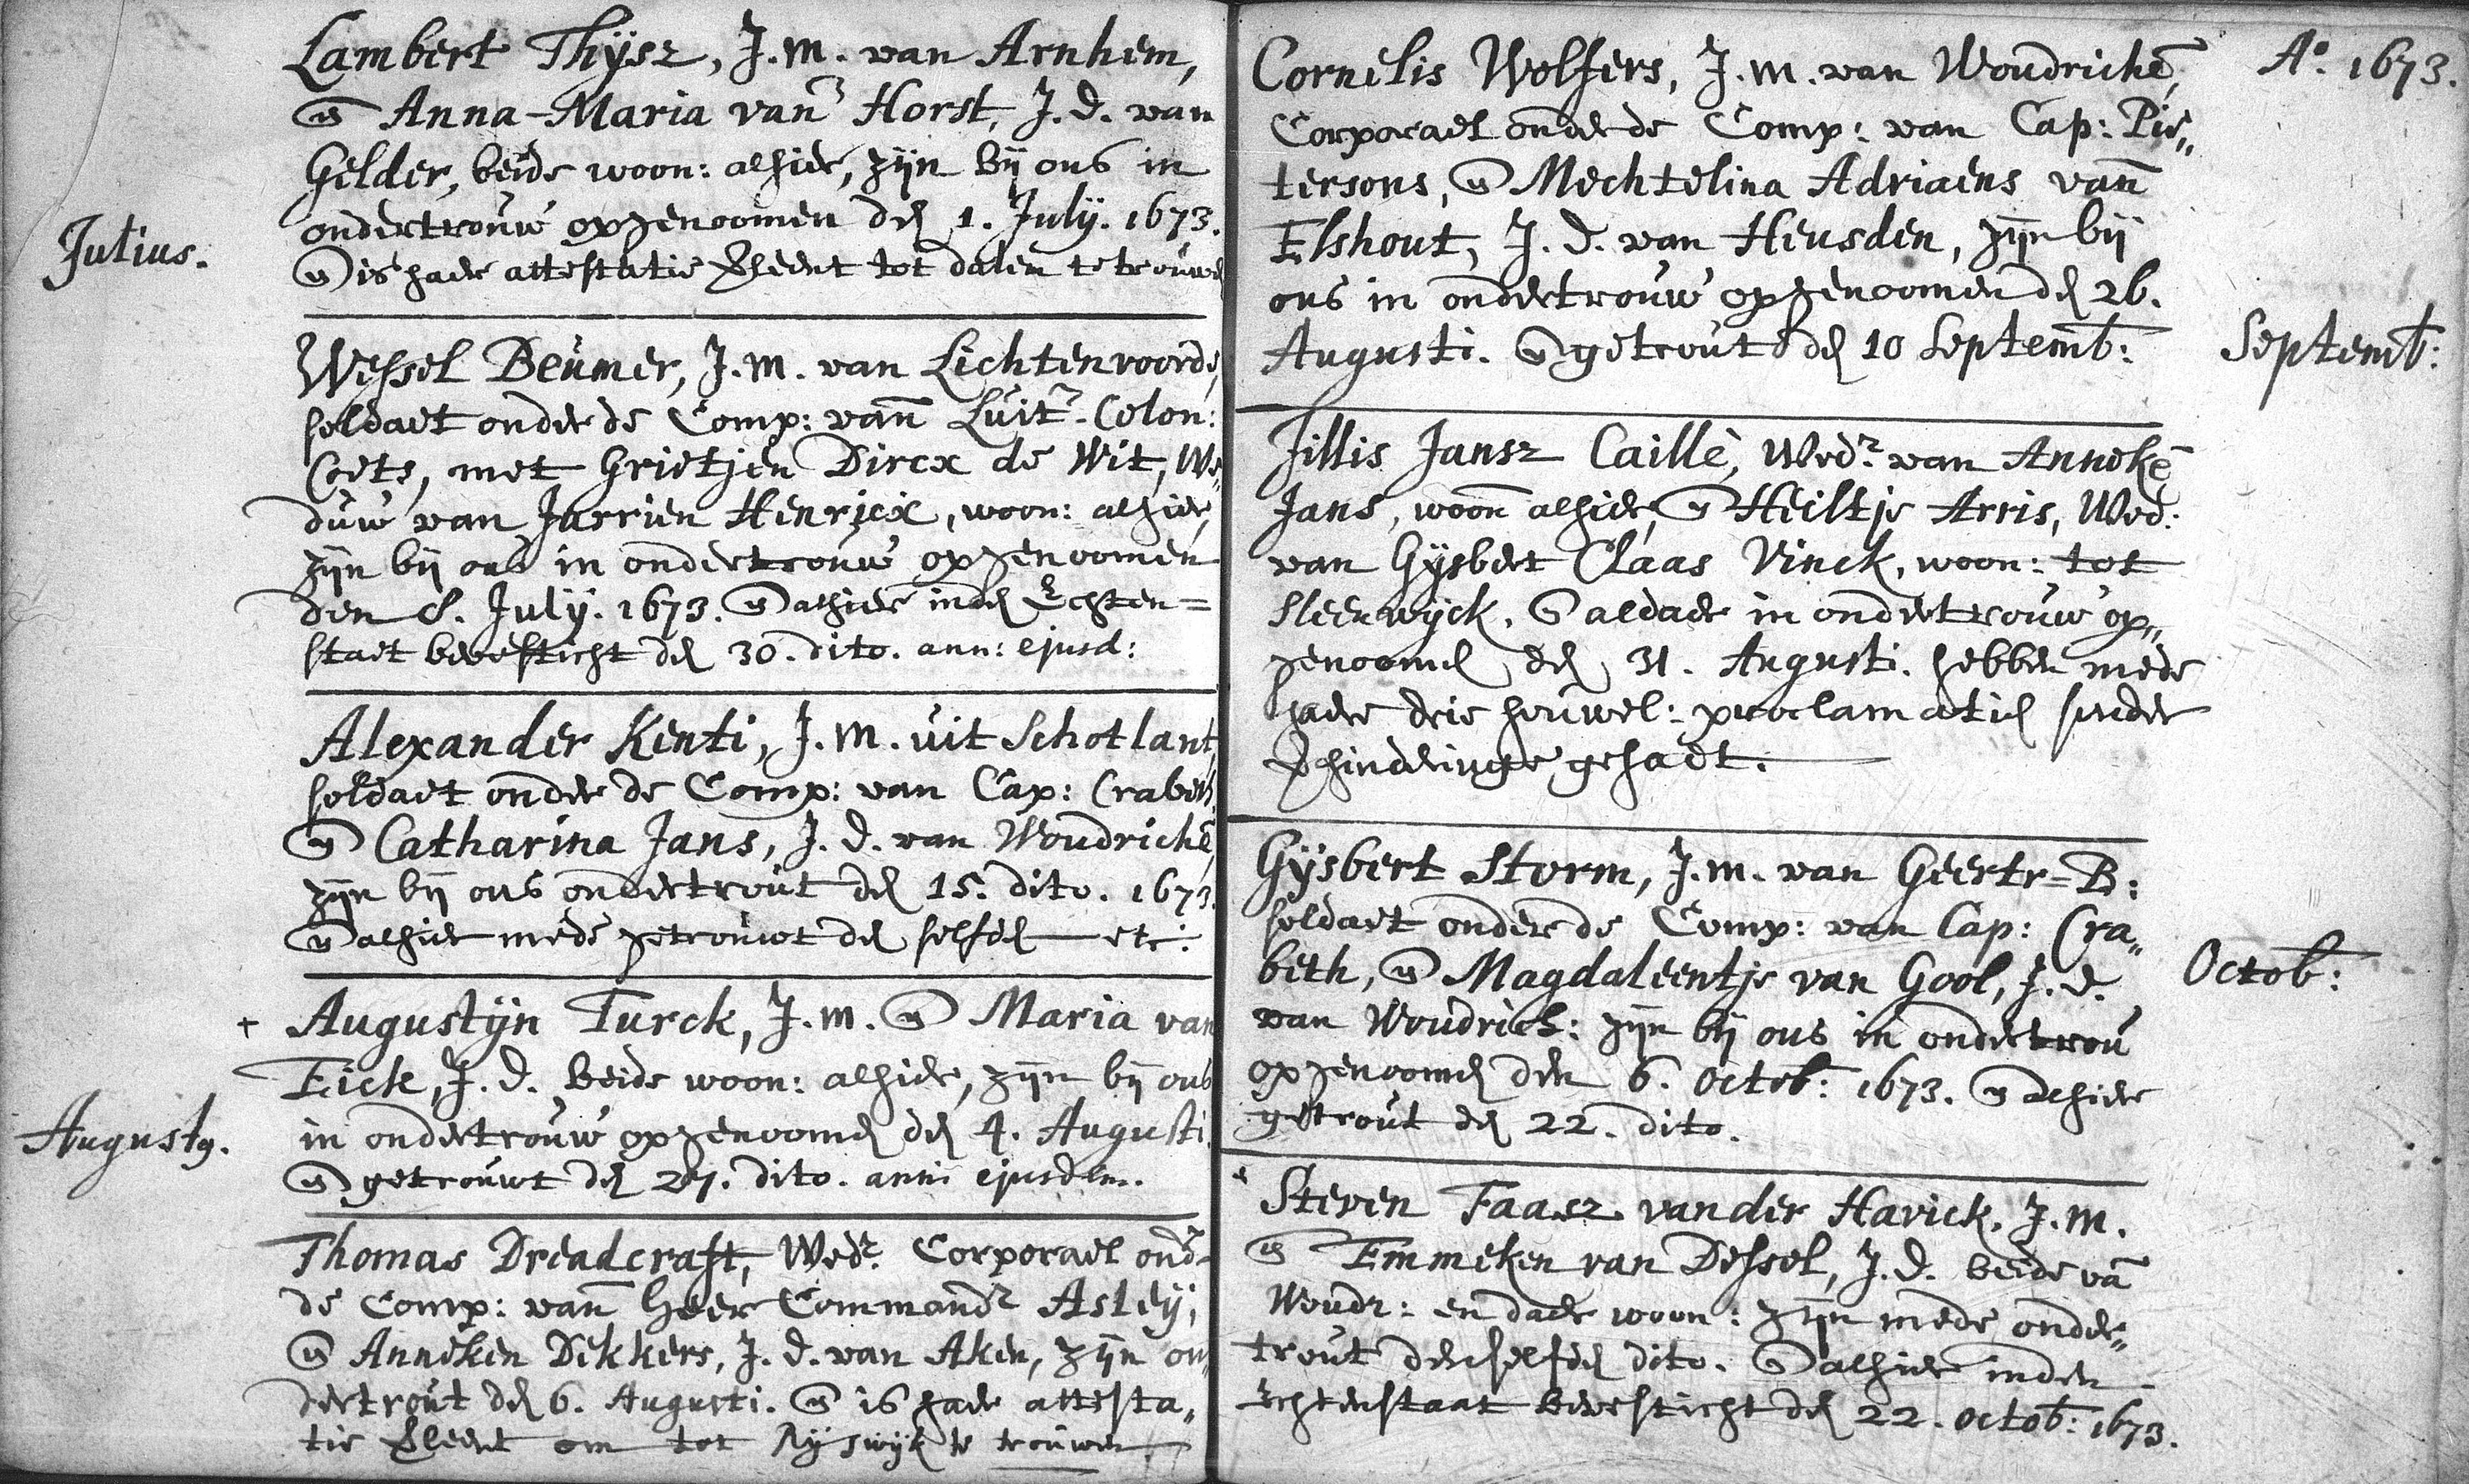 Lambert Thijsz, J.M. van Arnhem,
en Anna-Maria van Horst, J.d. van
Gelder, beide woon: alhier, zijn bij ons in
ondertrouw opgenoomen den 1. Julij. 1673.
Julius.
en is haer attestatie verleent tot dalem te trouwen
Wessel Beumer, J.M. van Lichtenvoorde,
soldaet onder de Comp: vann Luitr-Colon:
Coets, met Grietjen Dircx de Wit, We„
duw van Jurrien Henricx, woon: alhier,
zijn bij ons in ondertrouw opgenoomen
den 8. Julij. 1673. en alhier inden Echten=
staet bevesticht den 30. dito. ann: ejusd:
Alexander Kenti, J.M. uit Schotlant,
soldaet onder de Comp: van Cap: Crabeth,
en Catharina Jans, J.d. van Woudrichē,
zijn bij ons ondertrout den 15. dito. 1673.
en alhier mede getrouwt den selfden etc:
+ Augustijn Turck, J.m. en Maria van
Eick, J.d. beide woon: alhier, zijn bij ons
in ondertrouw opgenoomen den 4. Augusti.
Augustg.
en getrouwt den 27. dito. anni ejusdem.
Thomas Dreadcraft, Wedr. Corporael ondr
de Comp: vann Heer Commandr Asleij,
en Anneken Dekkers, J.d. van Aken, zijn on„
dertrout den 6. Augusti. en is haer attesta„
tie verleent om tot Rijswijk te trouwen
Ao. 1673.
Cornelis Wolfers, J.M. van Woudrichē,
Corporael onder de Comp: van Cap: Pie„
tersons, en Mechtelina Adriaens vann
Elshout, J.d. van Heusden, zijn bij
ons in ondertrouw opgenoomen den 26.
Augusti. en getrout den 10 Septemb:
Septemb:
Jillis Jansz Caillè, Wedr. van Annekē
Jans, woon alhier, en Heiltje Arris, Wed:
van Gijsbert Claas Vinck, woon: tot
Sleenwijck. en aldaer in ondertrouw op„
genoomen den 31. Augusti. hebben mede
haer drie houwel: proclamatien sonder
verhinderinge gehadt.
Gijsbert Storm, J.m. van Geertr=B:
soldaet onder de Comp: van Cap: Cra„
beth, en Magdaleentje van Gool, J.d.
Octob:
van Woudrich: zijn bij ons in ondertrou
opgenoomen den 6. Octob: 1673. en alhier
getrout den 22. dito.
+ Steven Faasz vander Havick. J.m.
en Emmeken van Dessel, J.d. beide vā
Woudr: en daer woon: zijn mede onder„
trout den selfden dito. en alhier inden
Echtenstaat bevesticht den 22. octob: 1673.